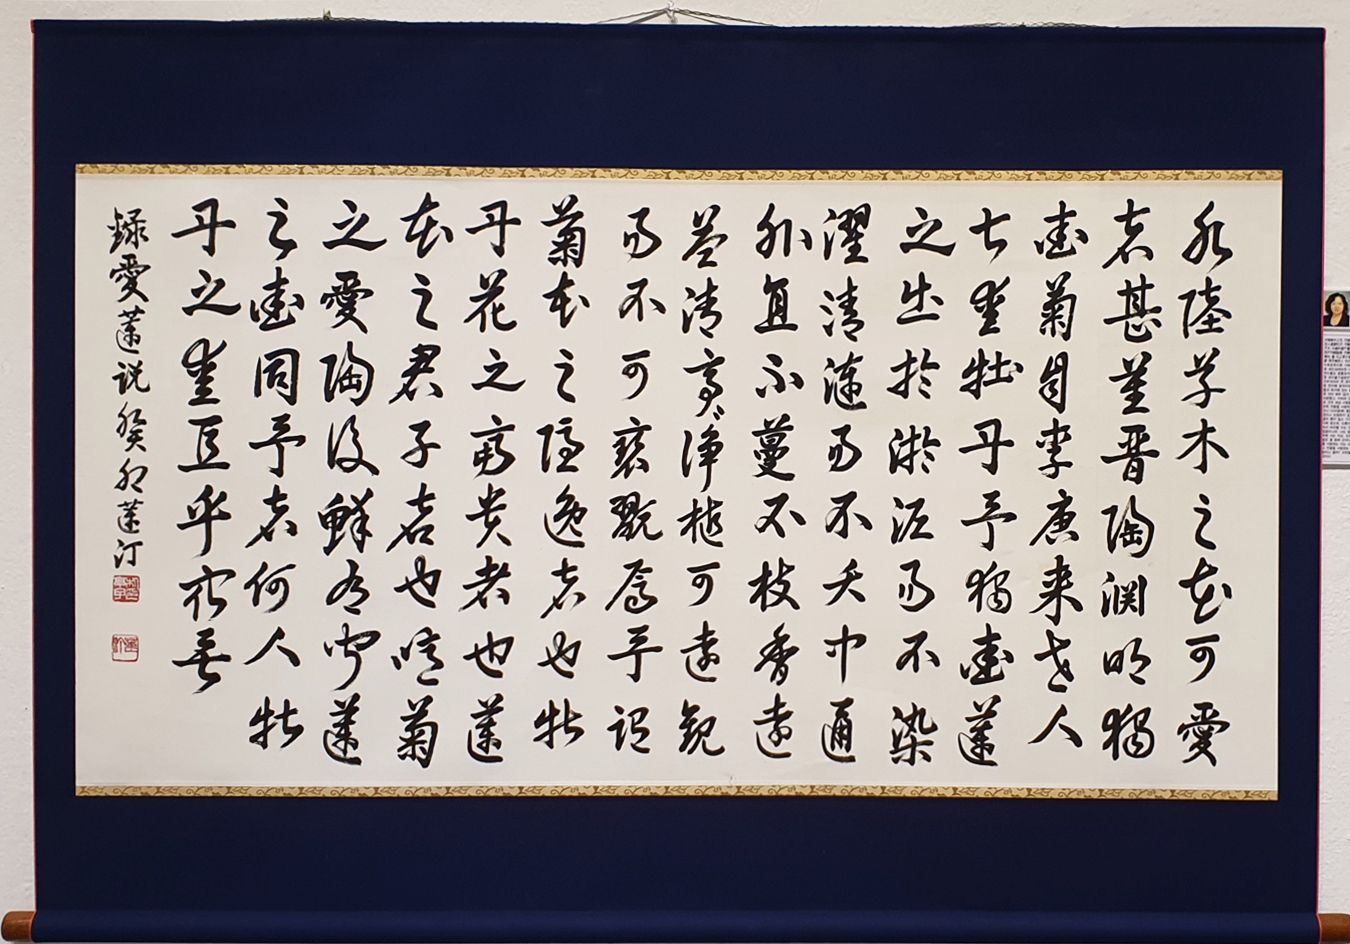 水陸草木之花可愛
者甚蕃晋陶渊明獨
愛菊自李唐来世人
甚愛牡丹予獨愛蓮
之出於淤泥而不染
濯清漣而不夭中通
外直不蔓不枝香遠
益清亭々淨植可遠觀
而不可褻翫焉予謂
菊花之隱逸者也牡
丹花之富貴者也蓮
花之君子者也噫菊
之愛陶後鮮有聞蓮
之愛同予者何人牡
丹之愛宜乎衆矣
録愛蓮説 癸卯 蓮汀